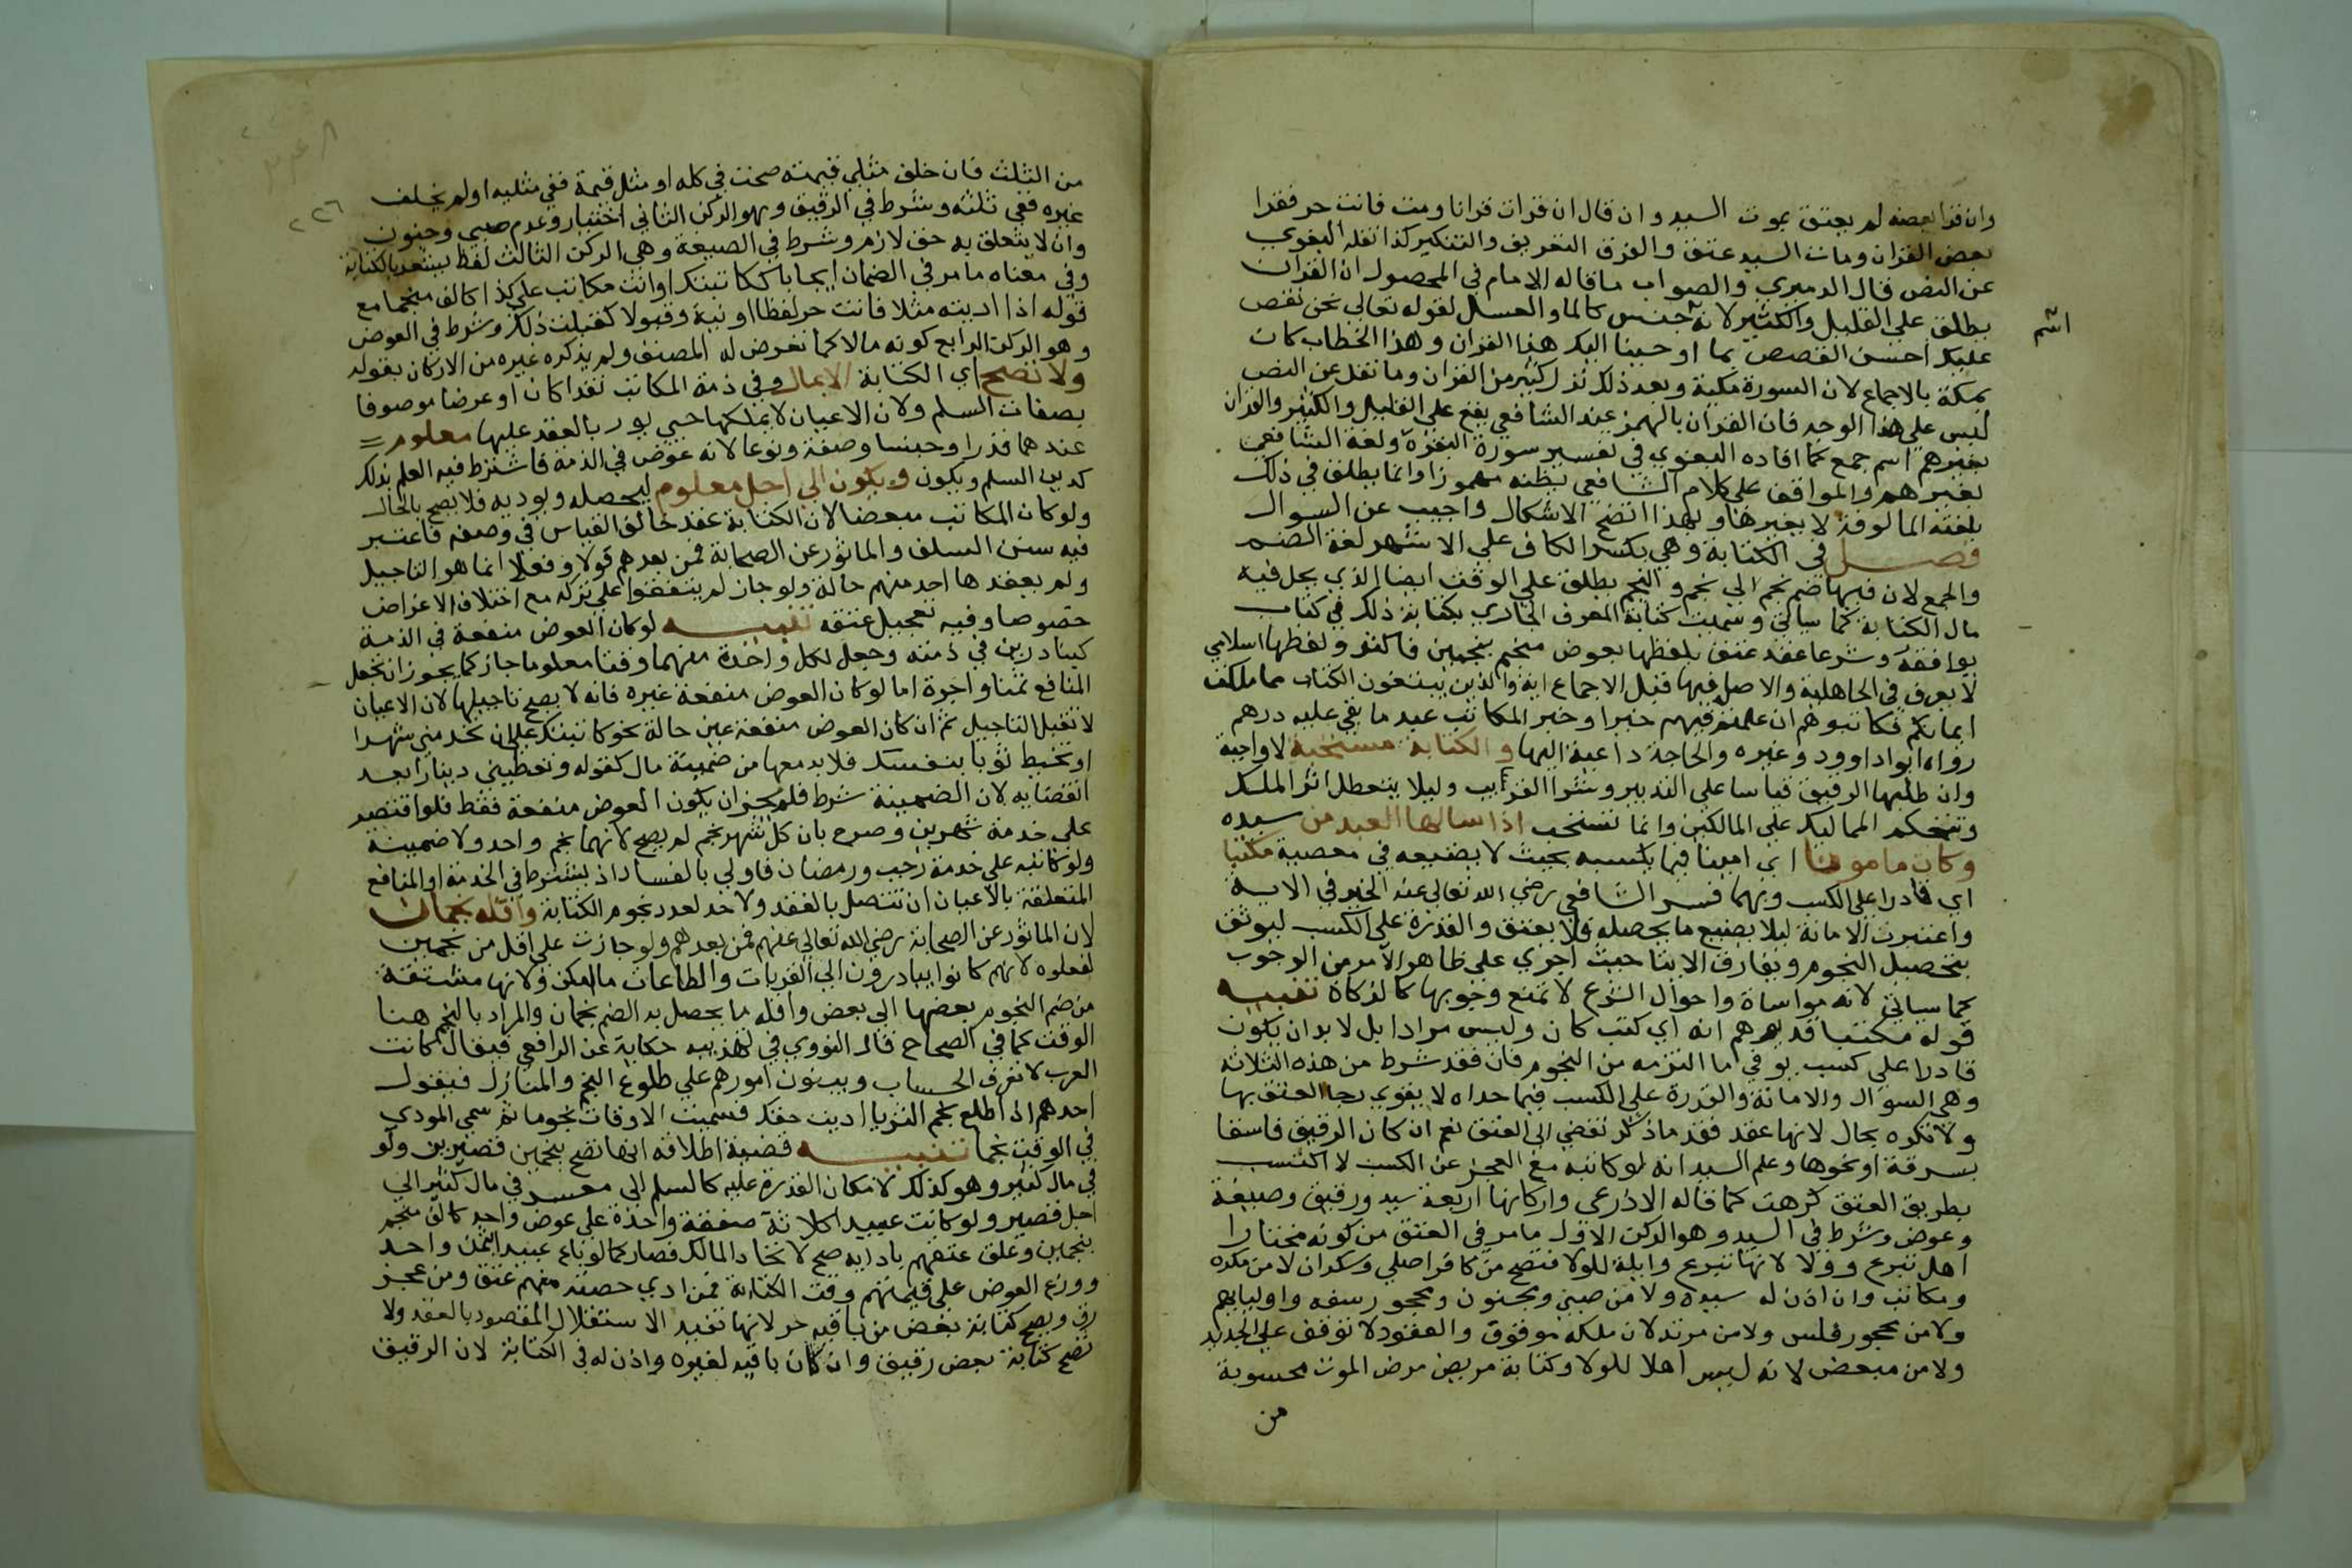 وان قرا بعضه لم يعتق بموت السيد وان قال ان قرات قرانا ومت فانت حر فقرا
بعض القران ومات السيد عتق والفرق التعريف والتنكير كذا نقله البغوي
عن النص قال الدميري والصواب ما قاله الامام في المحصول ان القران
يطلق علي القليل والكثير لانه اسم جنس كالماء والعسل لقوله تعالي نحن نقص
عليك احسن القصص بما اوحينا اليك هذا القران وهذا الخطاب كان
بمكة بالاجماع لان السورة مكية وبعد ذلك نزل كثير من القران وما نقل عن النص
ليس علي هذا الوجه فان القران بالهمز عند الشافعي يقع علي القليل والكثير والقران
بغيرهم اسم جمع كما افاده البغوي في تفسير سورة البقرة ولغة الشافعي
بغير همز والواقف علي كلام الشافعي يظنه مهموزا وانما يطلق في ذلك
بلغته المالوفة لا بغيرها وبهذا اتضح الاشكال واجيب عن السوال
فصل في الكتابة وهي بكسر الكاف علي الاشهر لغة الضم
والجمع لان فيها ضم نجم الي نجم والنجم يطلق علي الوقت ايضا الذي يحل فيه
مال الكتابة كما سياتي وسميت كتابة للعرف الجاري بكتابة ذلك في كتاب
يوافقه وشرعا عقد عتق بلفظها بعوض منجم بنجمين فاكثر ولفظها اسلامي
لا يعرف في الجاهلية والاصل فيها قبل الاجماع اية والذين يبتغون الكتاب مما ملكت
ايمانكم فكاتبوهم ان علمتم فيهم خيرا وخبر المكاتب عبد ما بقي عليه درهم
رواه ابو داوود وغيره والحاجة داعية اليها والكتابة مستحبة لا واجبة
وان طلبها الرقيق قياسا علي التدبير وشرا القريب وليلا يتعطل اثر الملك
وتتحكم المماليك علي المالكين وانما تستحب اذا سالها العبد من سيده
وكان مامونا اي امينا فيما يكسبه بحيث لا يضيعه في معصية مكتسبا
اي قادرا علي الكسب وبهما فسر الشافعي رضي الله تعالي عنه الخير في الاية
واعتبرت الامانة ليلا يضيع ما يحصله فلا يعتق والقدرة علي الكسب ليوثق
بتحصيل النجوم ويفارق الايتا حيث اجري علي ظاهر الامر من الوجوب
كما سياتي لانه مواساة واحوال الشرع لا تمنع وجوبها كالزكاة تنبيه
قوله مكتسبا قد يوهم انه اي كسب كان وليس مرادا بل لا بد ان يكون
قادرا علي كسب يوفي ما التزمه من النجوم فان فقد شرط من هذه الثلاثة
وهي السوال والامانة والقدرة علي الكسب فيما عداه لا يقوي رجا العتق بها
ولا تكره بحال لانها عند فقد ما ذكر تفضي الي العتق نعم ان كان الرقيق فاسقا
بسرقة او نحوها وعلم السيد انه لو كاتبه مع العجز عن الكسب لاكتسب
بطريق العتق كرهت كما قاله الاذرعي واركانها اربعة سيد ورقيق وصيغة
وعوض وشرط في السيد وهو الركن الاول ما مر في العتق من كونه مختارا
اهل تبرع وولا لانها تبرع وايلة للولا فتصح من كافر اصلي وسكران لا من مكره
ومكاتب وان اذن له سيده ولا من صبي ومجنون ومحجور سفه واوليايهم
ولا من محجور فلس ولا من مرتد لان ملكه موقوف والعقود لا توقف علي الجديد
ولا من مبعض لانه ليس اهلا للولا وكتابة مريض مرض الموت محسوبة
من
٢٢٦
من الثلث فان خلف مثلي قيمته صحت في كله او مثل قيمة ففي مثليه او لم يخلف
غيره ففي ثلثه وشرط في الرقيق وهو الركن الثاني اختيار وعدم صبي وجنون
وان لا يتعلق به حق لازم وشرط في الصيغة وهي الركن الثالث لفظ يشعر بالكتابة
وفي معناه ما مر في الضمان ايجابا ككاتبتك او انت مكاتب علي كذا كالف منجما مع
قوله اذا اديته مثلا فانت حر لفظا او نية وقبولا كقبلت ذلك وشرط في العوض
وهو الركن الرابع كونه مالا كما تعرض له المصنف ولم يذكره غيره من الاركان بقوله
ولا تصح اي الكتابة الا بمال وفي ذمة المكاتب نقدا كان او عرضا موصوفا
بصفات السلم ولان الاعيان لا يملكها حتي يورد العقد عليها معلوم
عندهما قدرا وجنسا وصفة ونوعا لانه عوض في الذمة فاشترط فيه العلم بذلك
كدين السلم ويكون ويكون الي اجل معلوم ليحصله ويوديه فلا يصح بالحال
ولو كان المكاتب مبعضا لان الكتابة عقد خالف القياس في وصفه فاعتبر
فيه سنن السلف والماثور عن الصحابة فمن بعدهم قولا وفعلا انما هو التاجيل
ولم يعقدها احد منهم حالة ولو جاز لم يتفقوا علي تركه مع اختلاف الاغراض
خصوصا وفيه تعجيل عتقه تنبيه لو كان العوض منفعة في الذمة
كبنا دارين في ذمته وجعل لكل واحدة منهما وقتا معلوما جاز كما يجوز ان تجعل
المنافع ثمنا واجرة اما لو كان العوض منفعة غيره فانه لا يصح تاجيلها لان الاعيان
لا تقبل التاجيل ثم ان كان العوض منفعة عين حالة نحو كاتبتك علي ان تخدمني شهرا
او تخيط ثوبا بنفسك فلا بد معها من ضميمة مال كقوله وتعطيني دينارا بعد
انقضايه لان الضميمة شرط فلم يجز ان يكون العوض منفعة فقط فلو اقتصر
علي خدمة شهرين وصرح بان كل شهر نجم لم يصح لانهما نجم واحد ولا ضميمة
ولو كاتبه علي خدمة رجب ورمضان فاولي بالفساد اذ يشترط في الخدمة او المنافع
المتعلقة بالاعيان ان تتصل بالعقد ولا حد لعدد نجوم الكتابة واقله نجمان
لان الماثور عن الصحابة رضي الله تعالي عنهم فمن بعدهم ولو جازت علي اقل من نجمين
لفعلوه لانهم كانوا يبادرون الي القربات والطاعات ما امكن ولانها مشتقة
من ضم النجوم بعضها الي بعض واقله ما يحصل به الضم نجمان والمراد بالنجم هنا
الوقت كما في الصحاح قال النووي في تهذيبه حكاية عن الرافعي فيقال كانت
العرب لا تعرف الحساب ويبنون امورهم علي طلوع النجم والمنازل فيقول
احدهم اذا طلع نجم الثريا اديت حقك فسميت الاوقات نجوما ثم سمي المودي
في الوقت نجما تنبيه قضية اطلاقه انها تصح بنجمين قصيرين ولو
في مال كثير وهو كذلك لامكان القدرة عليه كالسلم الي معسر في مال كثير الي
اجل قصير ولو كاتب عبيد كثلاثة صفقة واحدة علي عوض واحد كالف منجم
بنجمين وعلق عتقهم بادايه صح لاتحاد المالك فصار كما لو باع عبيدا بثمن واحد
ووزع العوض علي قيمتهم وقت الكتابة فمن ادي حصته منهم عتق ومن عجز
رق ويصح كتابة بعض من باقيه حر لانها تفيد الاستقلال المقصود بالعقد ولا
تصح كتابة بعض رقيق وان كان باقيه لغيره واذن له في الكتابة لان الرقيق